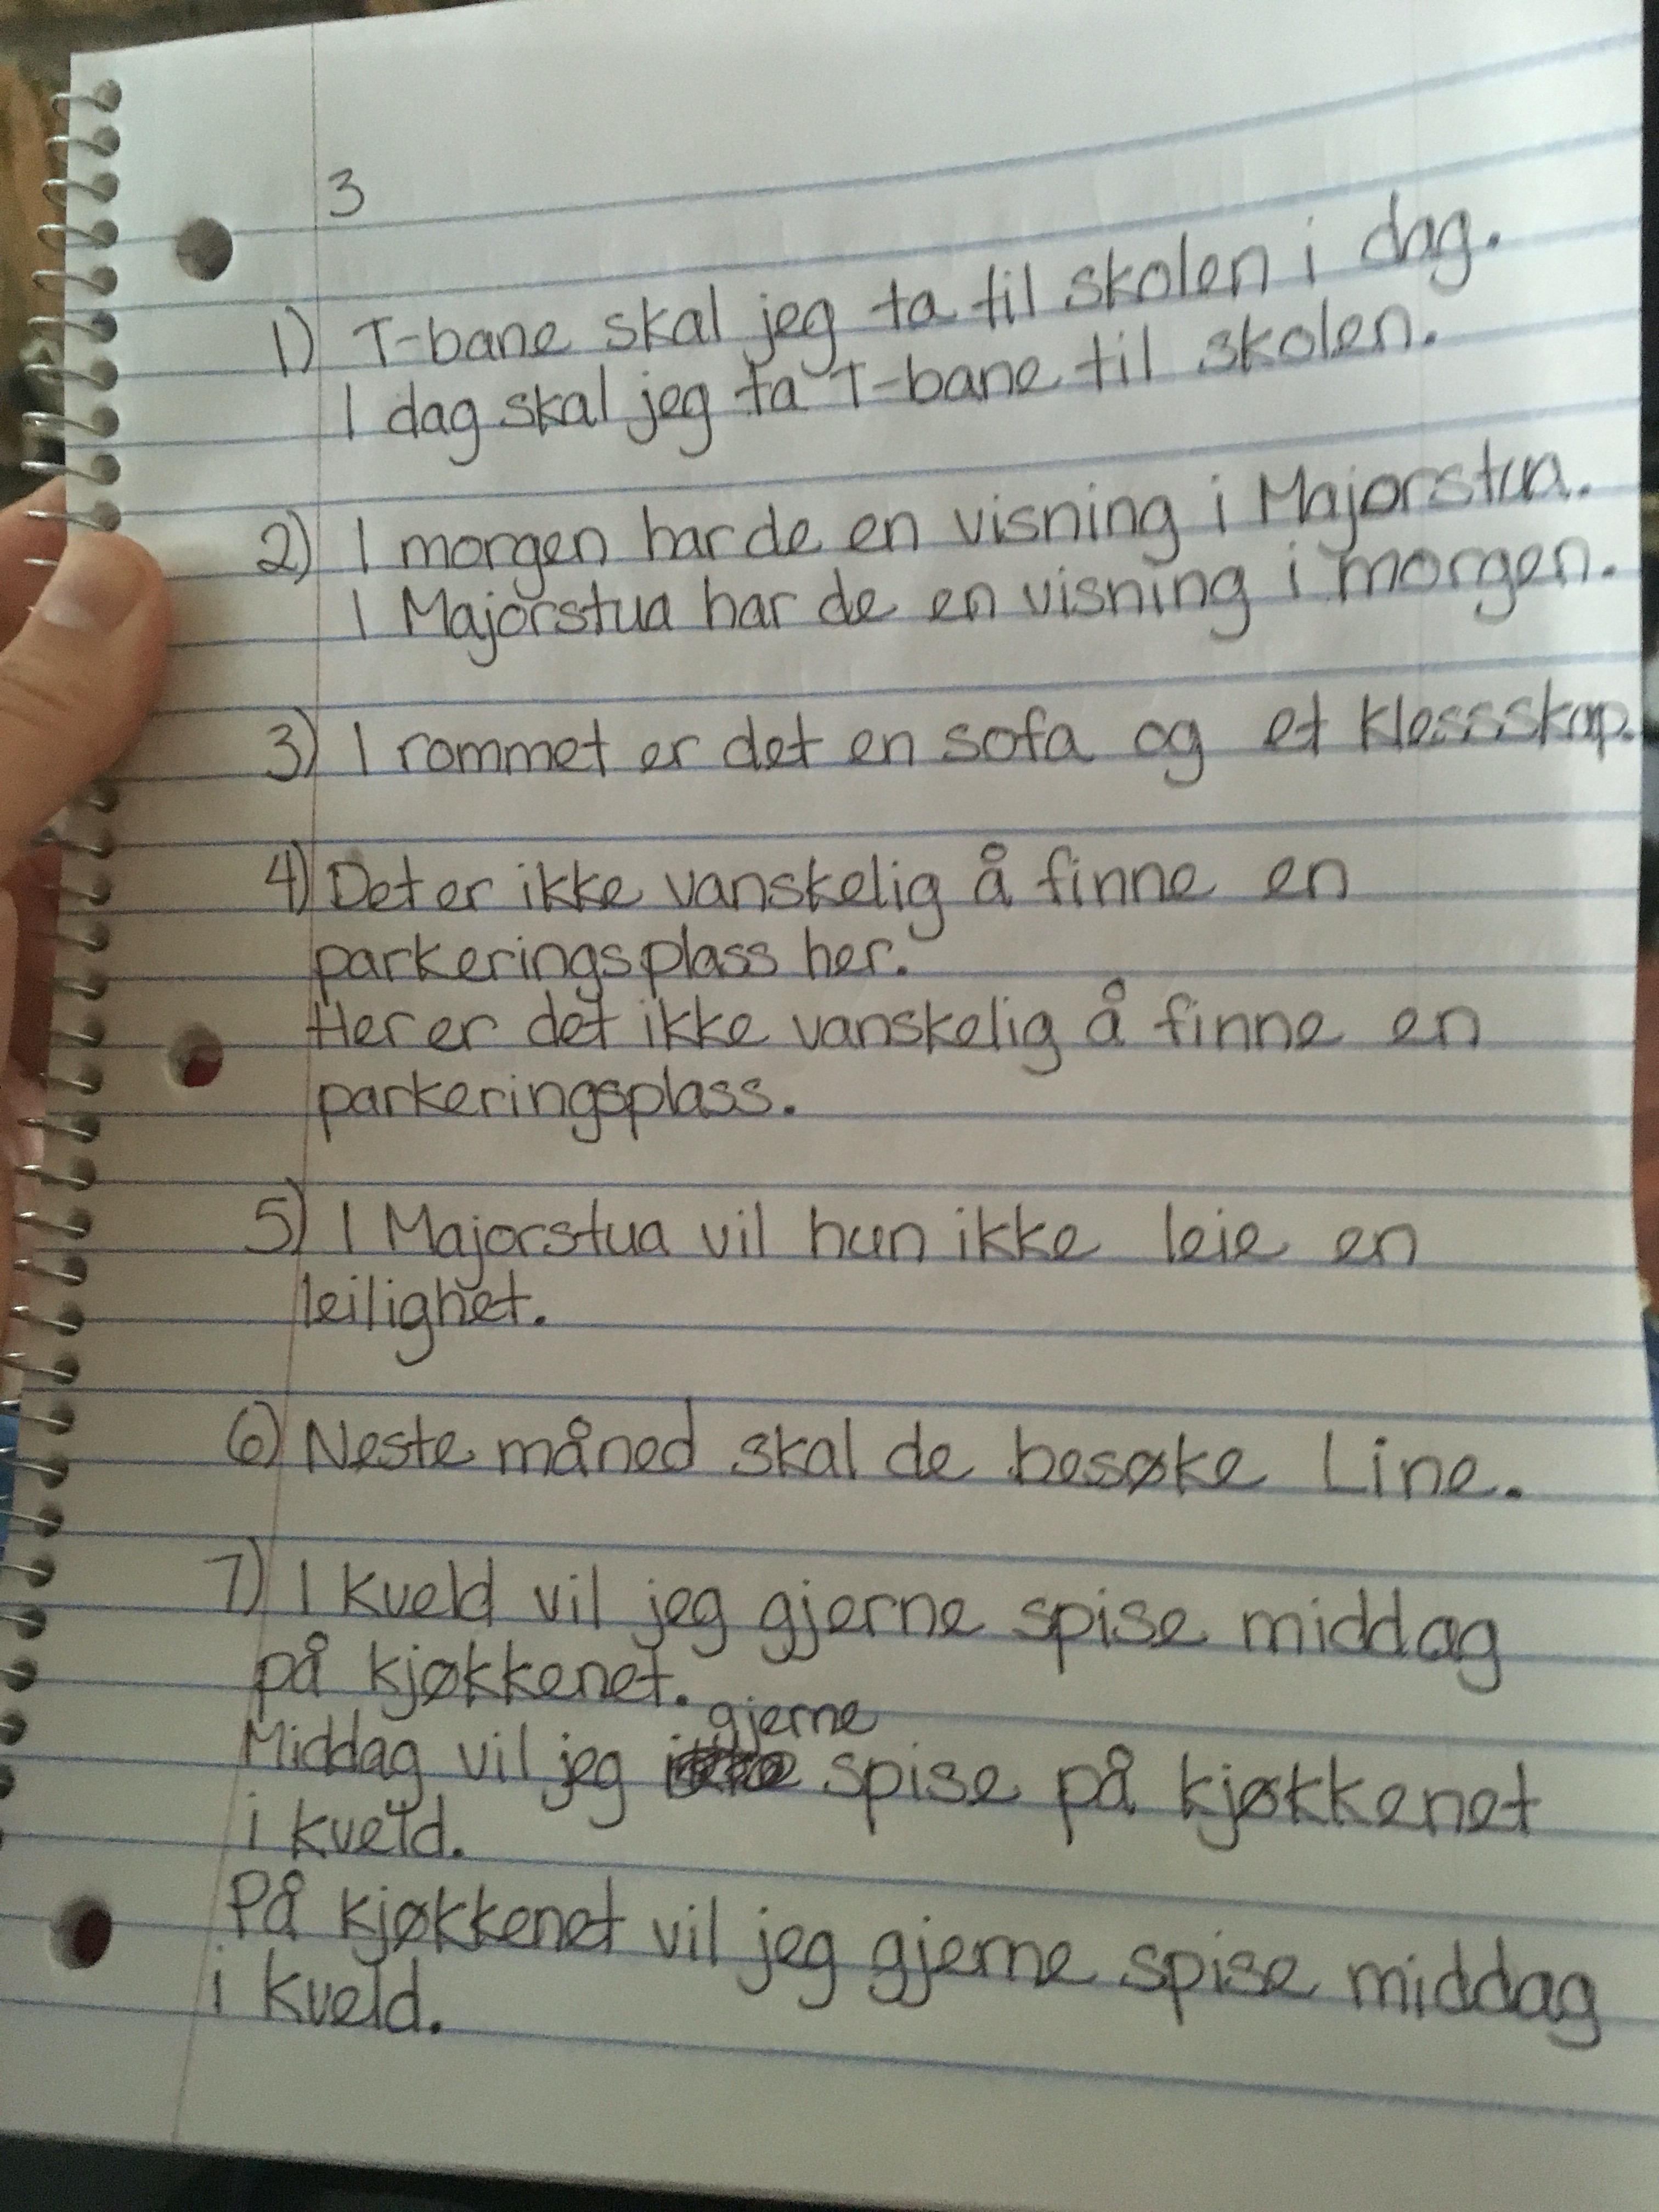 3
1) T-bane skal jeg ta til skolen i dag.
I dag skal jeg ta T-bane til skolen.
2) I morgen har de en visning i Majorstua.
I Majorstua har de en visning i morgen.
3) I rommet er det en sofa og et klessskap.
4) Det er ikke vanskelig å finne en
parkeringsplass her.
Her er det ikke vanskelig å finne en
parkeringsplass.
5) I Majorstua vil hun ikke leie en
leilighet.
6) Neste måned skal de besøke Line.
7) I kveld vil jeg gjerne spise middag
på kjøkkenet.
Middag vil jeg gjerne spise på kjøkkenet
i kveld.
På kjøkkenet vil jeg gjerne spise middag
i kveld.